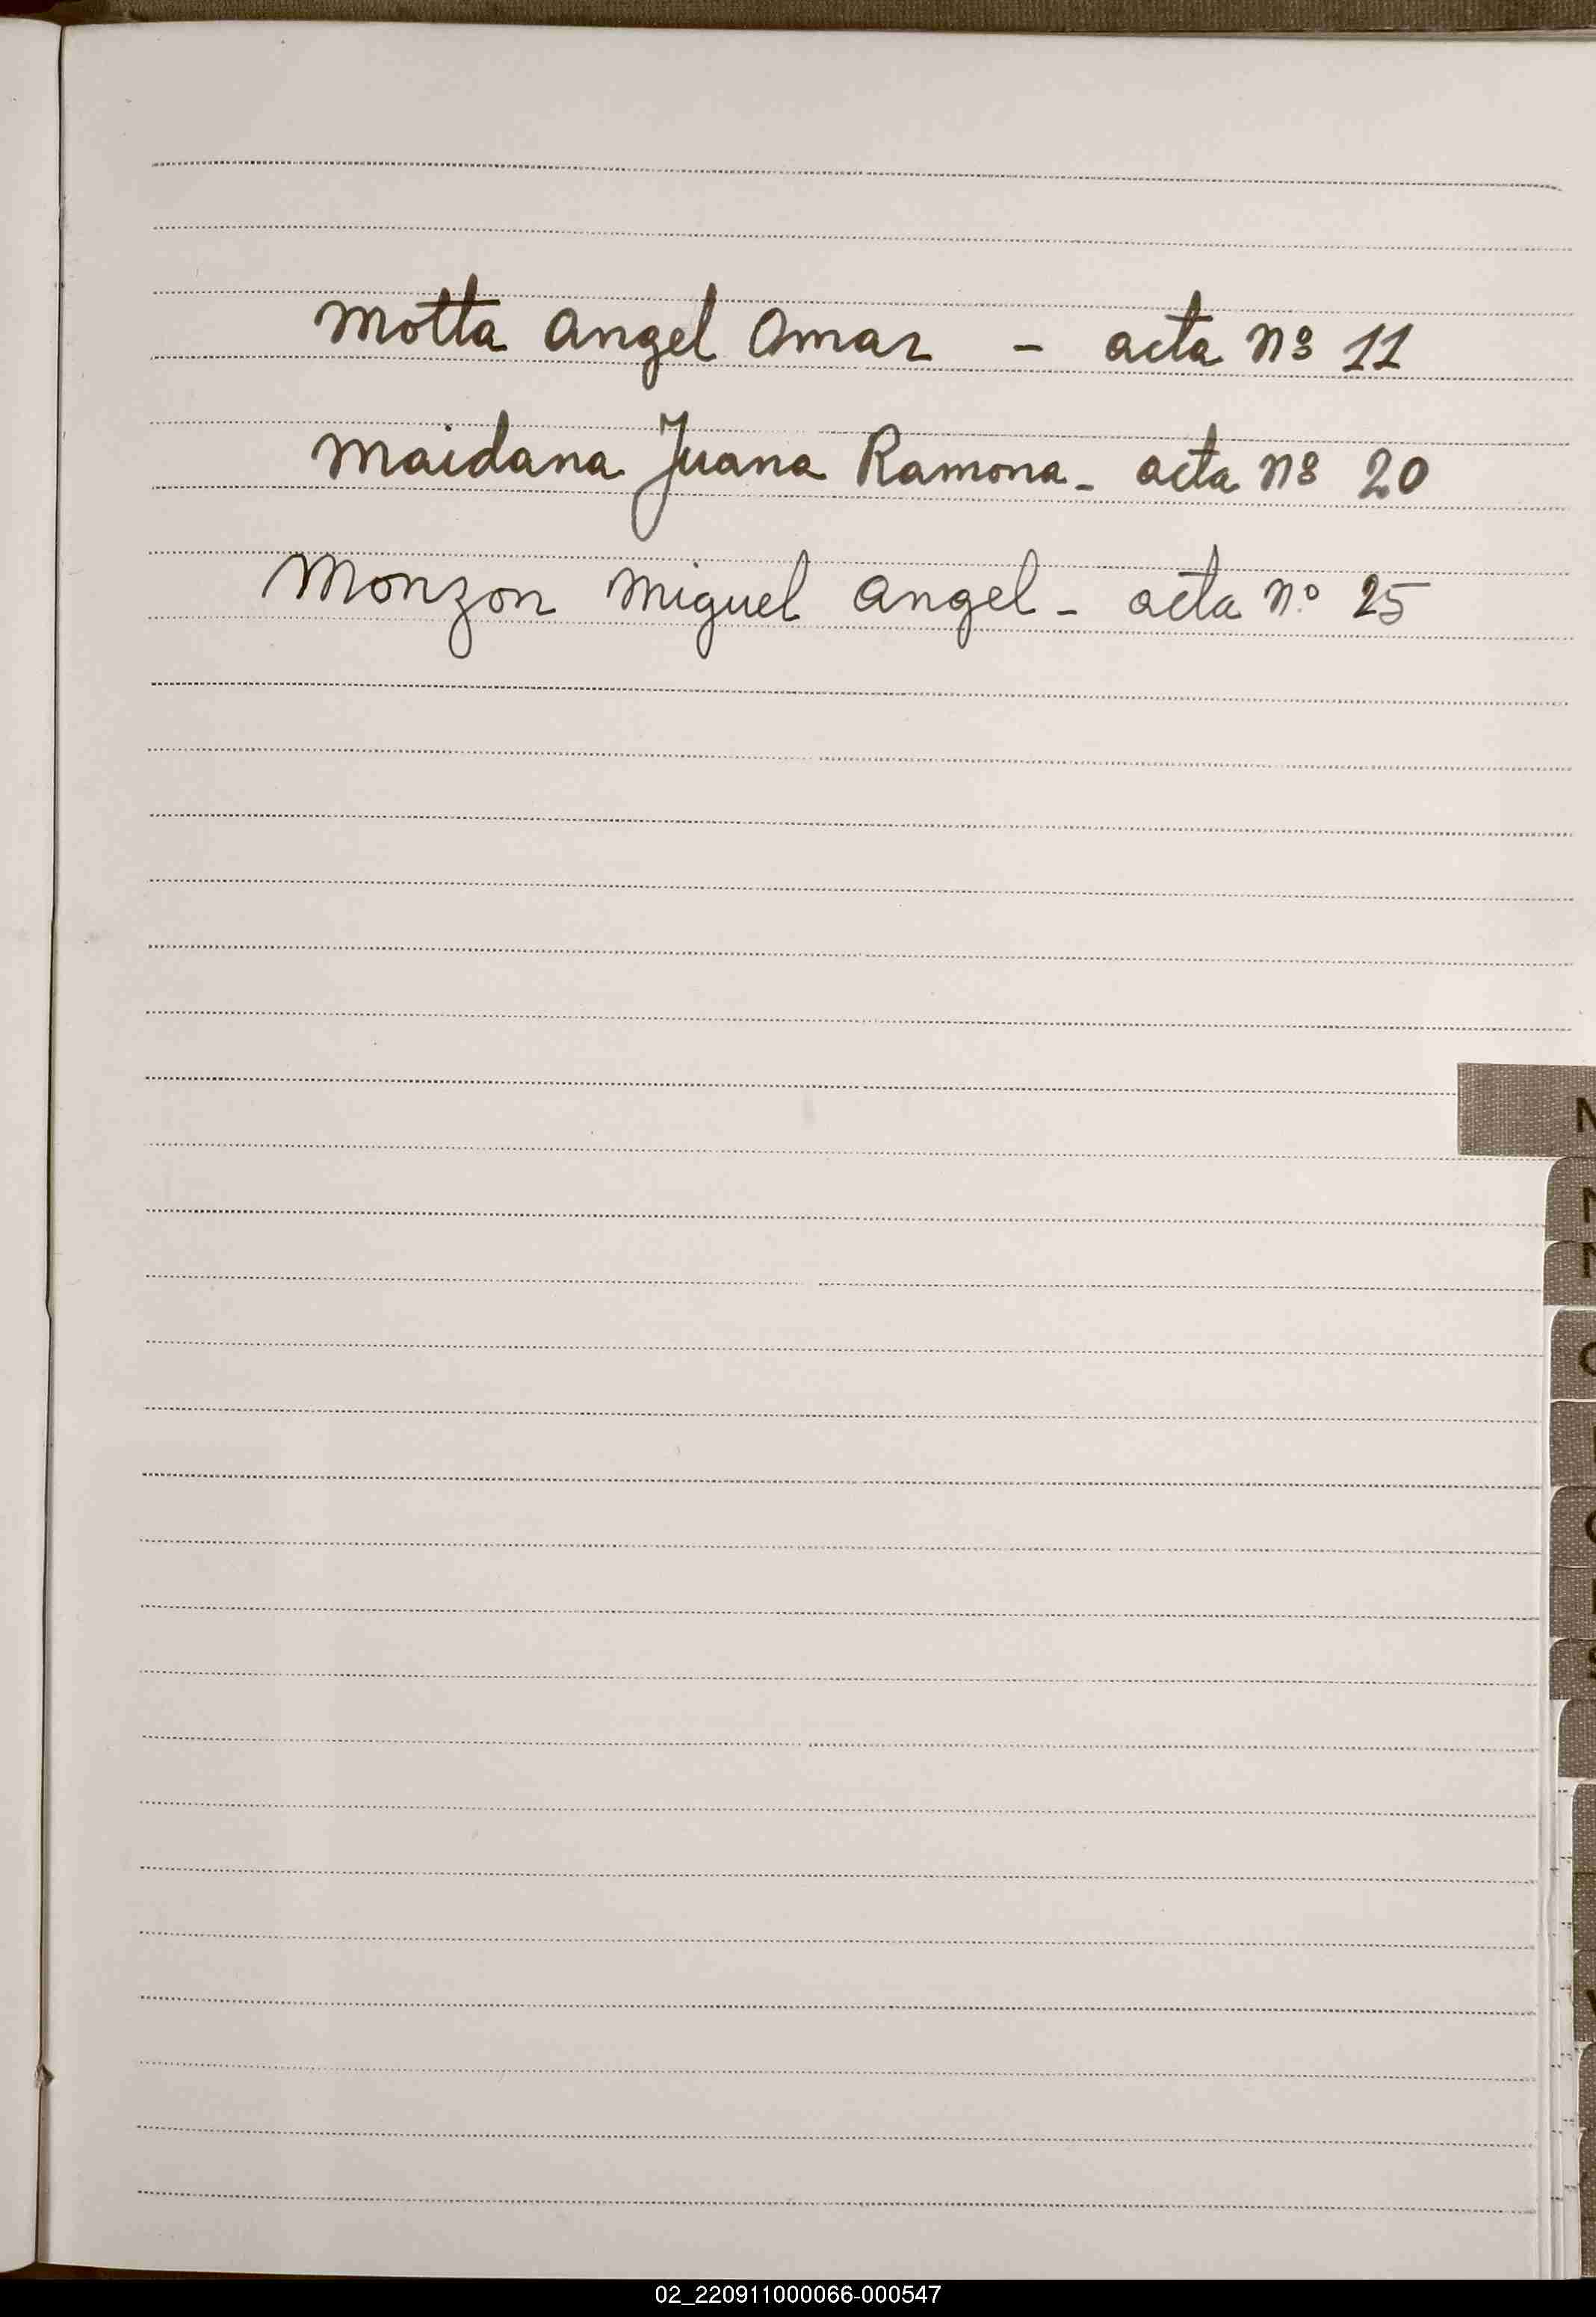 Motta Angel Omar - acta nº 11
Maidana Juana Ramona - acta nº 20
Monzon Miguel Angel - acta n.º 25
02_220911000066-000547